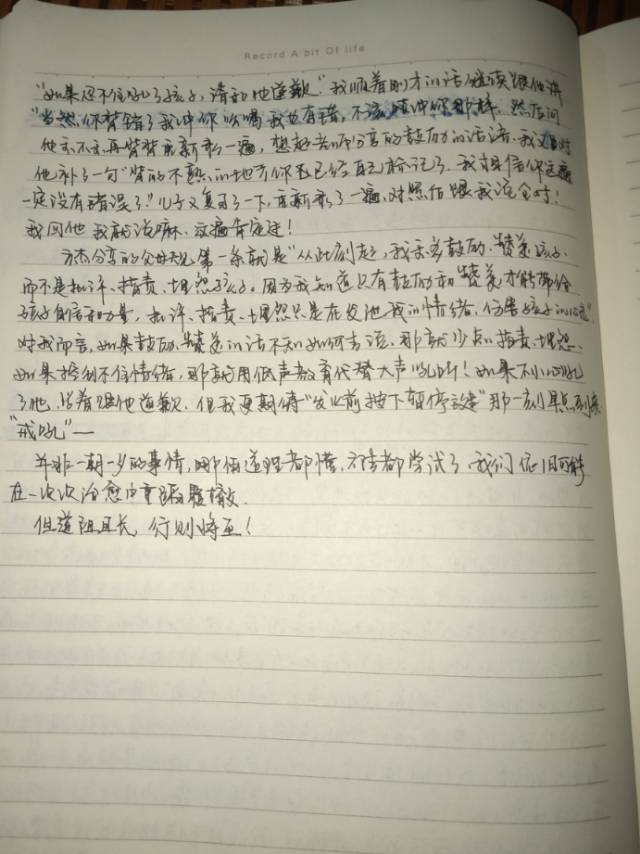 Record A bit Of life
"如果忍不住吼了孩子，请和他道歉"我顺着刚才的话继续跟他讲
"当然你背错了我冲你吼嘛我也有错，不该冲你那样，然后问
他要不要再背背重新默一遍，想起老师分享的鼓励的话语，我又对
他补了一句"背的不熟的地方你都已经自己标记了，我相信你这遍
一定没有错误了"儿子又复习了一下，重新默了一遍，对照后跟我说全对！
我回他我就说嘛，这遍肯定过！
分享的父母规第一条就是"从此刻起，我要多鼓励、赞美孩子，
而不是批评、指责、埋怨孩子。因为我知道只有鼓励和赞美才能带给
孩子自信和力量，批评、指责、埋怨只是在发泄我的情绪，伤害孩子的心灵"
对我而言，如果鼓励、赞美的话不知如何去说，那就少点指责、埋怨，
如果控制不住情绪，那就用低声教育代替大声吼叫！如果不小心吼
了他，皆着跟他道歉，但我更期待"发火前按下暂停键"那一刻早点到来
"戒吼"—
并非一朝一夕的事情，哪怕道理都懂，方法都尝试了，我们依旧可能
在一次次治愈中重蹈覆辙
但道阻且长，行则将至！